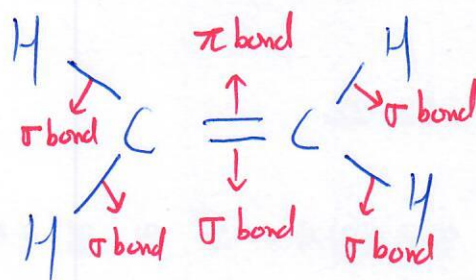 H π bond H
σ bond C = C σ bond
H σ bond σ bond σ bond H